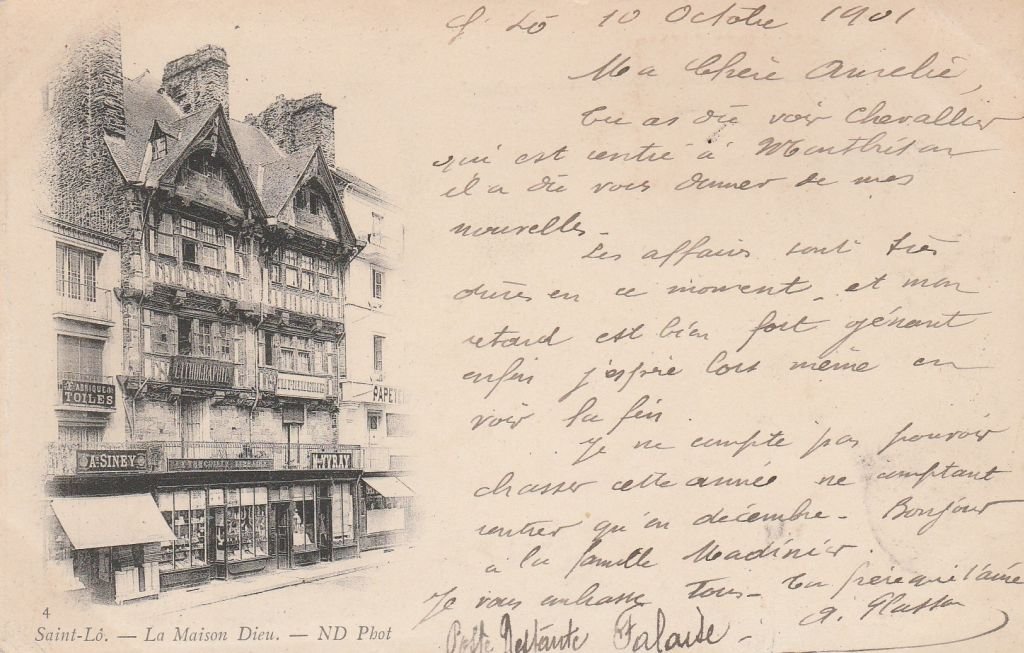 St Lô 10 Octobre 1901
Ma Chère Aurelie,
tu as dû voir Chevallier
qui est rentré à Montbrison
il a dû vous donner de mes
nouvelles.
Les affaires sont très
dures en ce moment, et mon
retard est bien fort gênant
enfin j'espère tout même en
voir la fin.
Je ne compte pas pouvoir
chasser cette année ne comptant
rentrer qu'en décembre. Bonjour
à la famille Madinier.
Je vous embrasse tous. Ton frère qui t'aime
Poste Restante Falaise.
FABRIQUE DE
TOILES
LITHOGRAPHIE
PAPETERIE
A. SINEY
4
Saint-Lô. — La Maison Dieu. — ND Phot